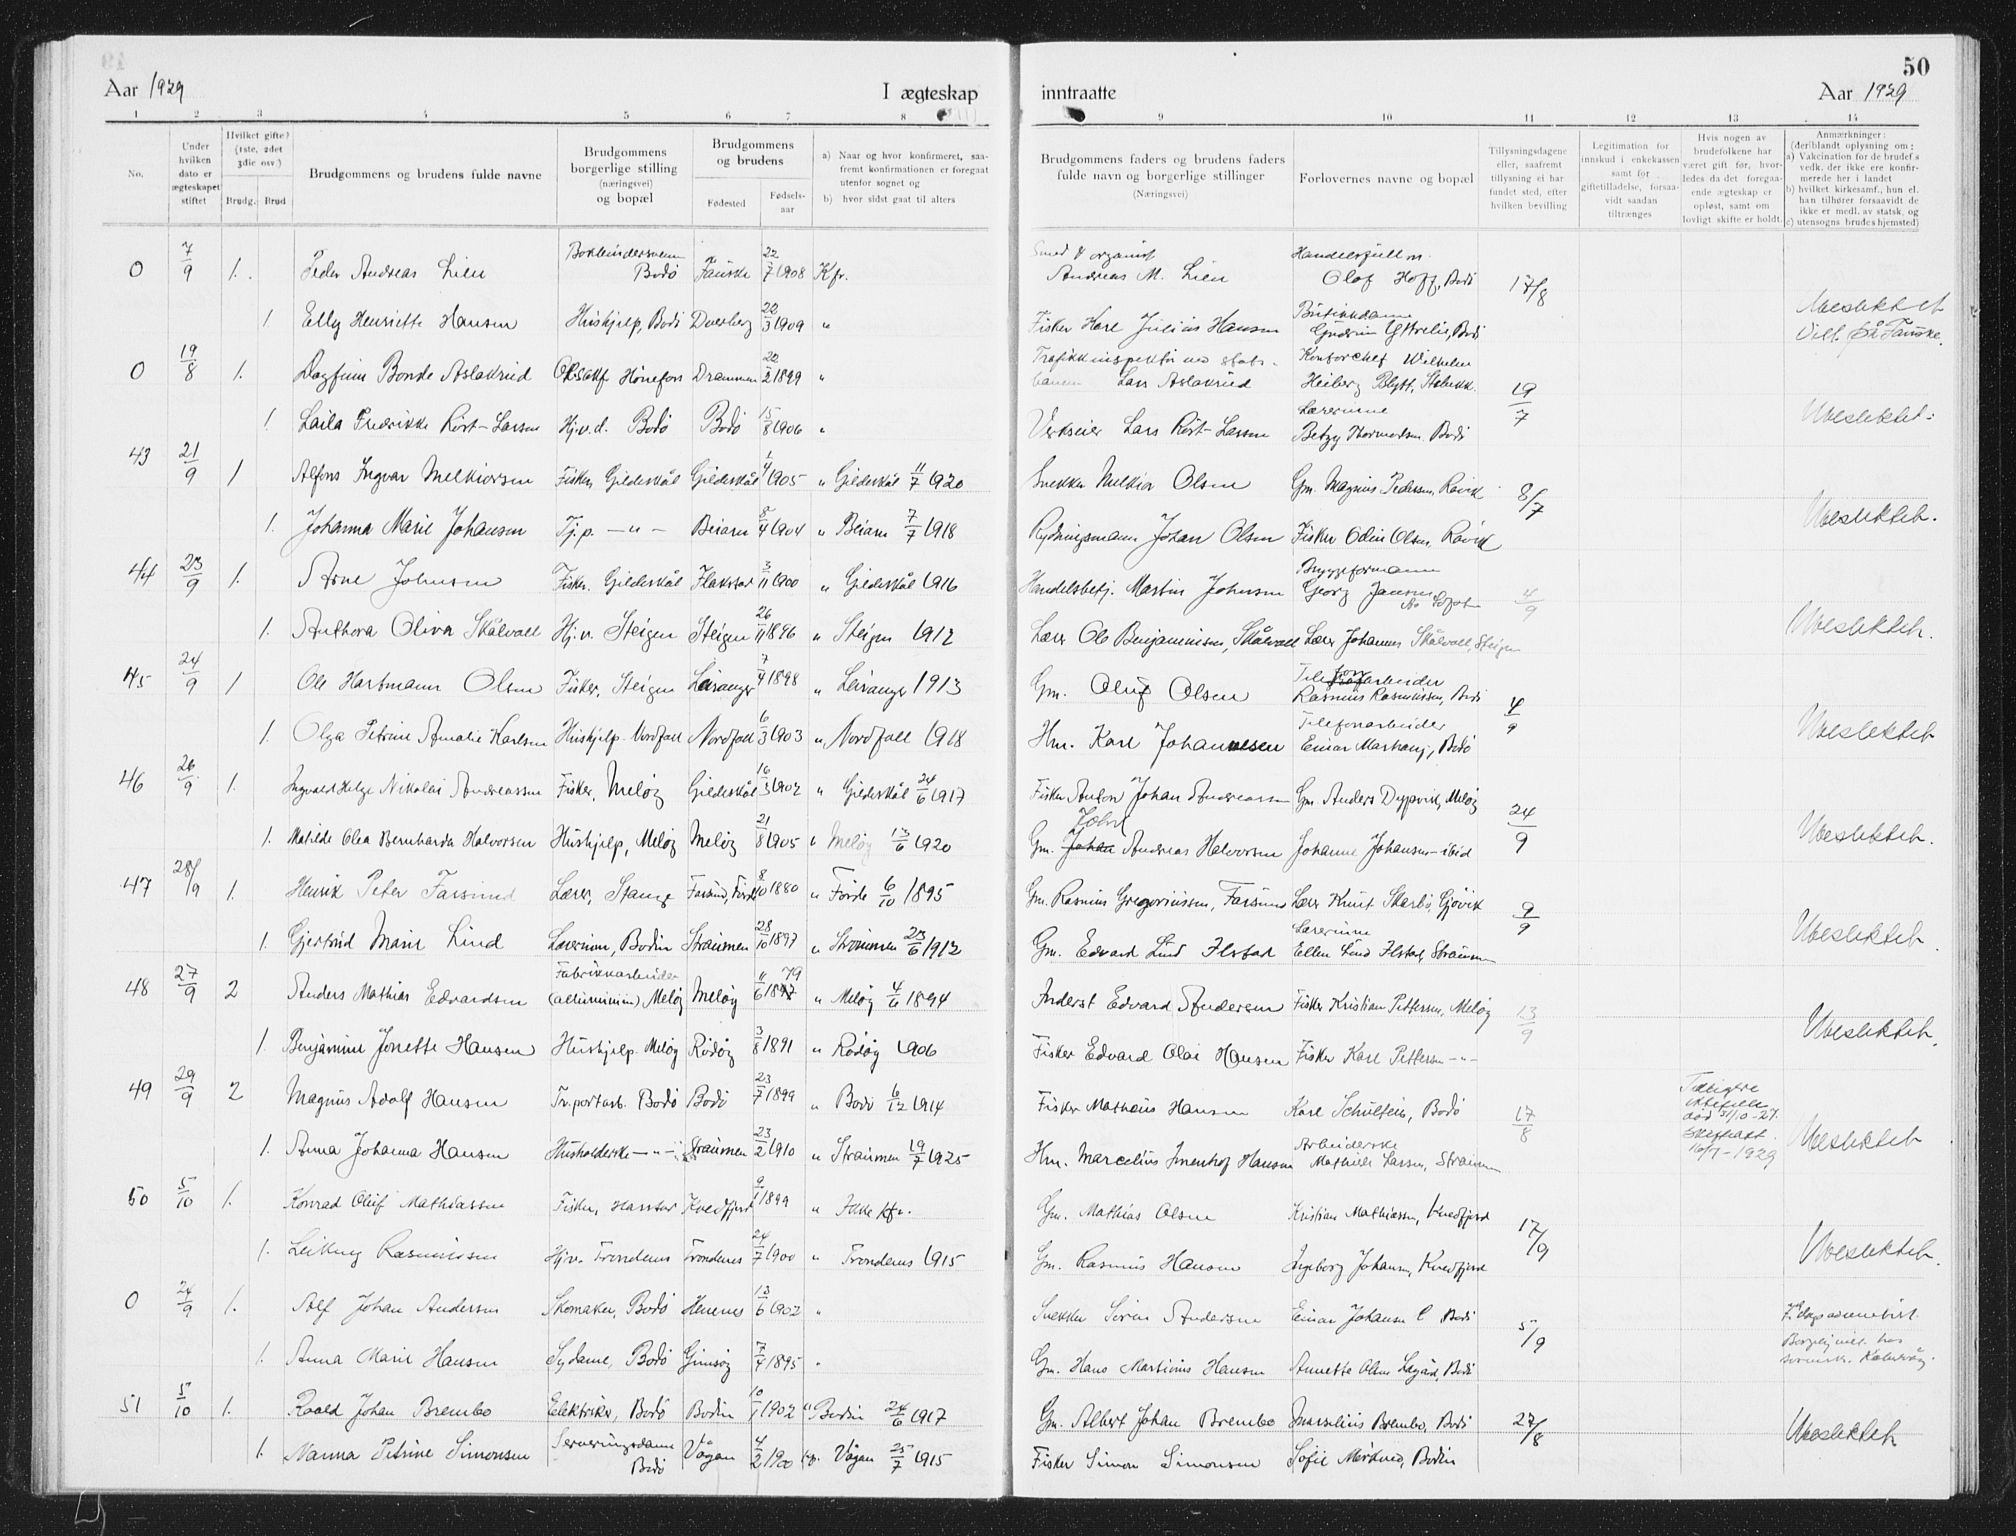 50
Aar 1929 I ægteskap inntraatte Aar 1929
1 2 3 4 5 6 7 8 9 10 11 12 13 14
No.
Under hvilken dato er ægteskapet stiftet
Hvilket gifte? (1ste, 2det 3die osv.)
Brudg. Brud
Brudgommens og brudens fulde navne
Brudgommens borgerlige stilling (næringsvei) og bopæl
Brudgommens og brudens
Fødested Fødsels-aar
a) Naar og hvor konfirmeret, saafremt konfirmationen er foregaat utenfor sognet og
b) hvor sidst gaat til alters
Brudgommens faders og brudens faders fulde navn og borgerlige stillinger
(Næringsvei)
Forlovernes navne og bopæl
Tillysningsdagene eller, saafremt tillysning ei har fundet sted, efter hvilken bevilling
Legitimation for innskud i enkekassen samt for giftetilladelse, forsaavidt saadan tiltrænges
Hvis nogen av brudefolkene har været gift før, hvorledes da det foregaaende ægteskap er opløst, samt om lovligt skifte er holdt.
Anmærkninger: (deriblandt oplysning om:
a) Vakcination for de brudef.s vedk. der ikke ere konfirmerede her i landet
b) hvilket kirkesamf., hun el. han tilhører forsaavidt de ikke er medl. av statsk. og
c) utensogns brudes hjemsted)
0 7/9 1. Peder Andreas Lien Bokbindersvenn Bodø Fauske 22/7 1908 Kfr. Smed & organist Andreas M. Lien Handelsfullm. Olof Hoff, Bodø 17/8
1 Elly Henriette Hansen Hushjelp, Bodø Dverberg 22/3 1909 " Fisker Karl Julius Hansen Butikkdame Gudrun Ytterlie, Bodø Ubeslektet Viet på Fauske.
0 19/8 1. Dagfinn Bonde Aslakrud Hønefoss Drammen 20/2 1899 " Trafikkinspektør ved statsbanen Lars Aslakrud Kontorchef Wilhelm Heiberg Blytt, Stabekk. 19/7
1 Laila Fredrikke Røst-Larsen Hj.v.d. Bodø Bodø 15/8 1906 " Verkseier Lars Røst-Larsen Lærerinne Betzy Thormodsen Bodø Ubeslektet.
43 21/9 1 Alfons Ingvar Melkiorsen Fisker, Gildeskål Gildeskål 1/4 1905 " Gildeskål 11/7 1920 Snekker Melkior Olsen Gm. Magnus Pedersen, Røvik 8/7
1. Johanna Marie Johansen Tj.p. — " — Beiarn 5/4 1904 " Beiarn 7/7 1918 Rydningsmann Johan Olsen Fisker Odin Olsen, Røvik Ubeslektet.
44 23/9 1. Arne Johnsen Fisker. Gildeskål Flakstad 3/11 1900 " Gildeskål 1916 Handelsbetj. Martin Johnsen Bryggeformann Georg Jansen 4/9
1. Anthora Oliva Skålvoll Hj.v. Steigen Steigen 26/11 1896 " Steigen 1912 Lærer Ole Benjaminsen, Skålvoll Lærer Johannes Skålvoll, Steigen Ubeslektet.
45 24/9 1 Ole Hartmann Olsen Fisker, Steigen Leiranger 7/4 1898 " Leiranger 1913 Gm. Oluf Olsen Telefonarbeider Rasmus Rasmussen, Bodø 4/9
1. Olga Petrine Amalie Karlsen Hushjelp Nordfoll Nordfoll 6/3 1903 " Nordfoll 1918 Hm. Karl Johannesen Telefonarbeider Einar Marhaug, Bodø Ubeslektet
46 26/9 1. Ingvald Helge Nikolai Andreassen Fisker, Meløy Gildeskål 16/3 1902 " Gildeskål 24/6 1917 Fisker Anton Johan Andreassen Gm. Anders Dypvik, Meløy 24/9
1. Matilde Olea Bernharda Halvorsen Hushjelp, Meløy Meløy 21/8 1905 " Meløy 13/6 1920 Gm. Johan John Andreas Halvorsen Johanne Johansen — ibid Ubeslektet.
47 28/9 1. Henrik Peter Farsund Lærer, Stange Farsund, Førde 8/10 1880 " Førde 6/10 1895 Gm. Rasmus Gregoriussen, Farsund Lærer Knut Skarbø, Gjøvik 9/9
1. Gjertrud Marie Lind Lærerinne, Bodin Straumen 28/10 1897 " Straumen 23/6 1912 Gm. Edvard Lind Ilstad Lærerinne Ellen Lind Ilstad, Straumen Ubeslektet.
48 27/9 2 Anders Mathias Edvardsen Fabrikkarbeider (alluminium) Meløy Meløy 11/6 1879 " Meløy 4/6 1894 Inderst Edvard Andersen Fisker Kristian Pettersen, Meløy 13/9
1. Benjamine Jonette Hansen Hushjelp Meløy Rødøy 3/8 1891 " Rødøy 1906 Fisker Edvard Olai Hansen Fisker Karl Pettersen — " — Ubeslektet.
49 29/9 2 Magnus Adolf Hansen Tr.portarb. Bodø Bodø 23/7 1899 " Bodø 6/12 1914 Fisker Matheus Hansen Karl Schultein, Bodø 17/8 Tidligere ektefelle død 31/10-27. Skiftatt. 10/7-1929
1. Anna Johanna Hansen Husholderske — " — Straumen 23/2 1910 " Straumen 19/7 1925 Hm. Marcelius Imenhof Hansen Arbeiderske Mathilde Larsen, Straumen Ubeslektet
50 5/10 1. Konrad Oluf Mathiassen Fisker, Harstad Kvedfjord 9/1 1899 " Ikke kfr. Gm. Mathias Olsen Kristian Mathiassen, Kvedfjord 17/9
1. Leikny Rasmussen Hj.v. Trondenes Trondenes 24/7 1900 " Trondenes 1915 Gm. Rasmus Hansen Ingeborg Johansen, Kvedfjord Ubeslektet.
0 24/9 1. Alf Johan Andersen Skomaker, Bodø Hemnes 13/6 1902 " Snekker Søren Andersen Einar Johansen Bodø 5/9
1. Anna Marie Hansen Sydame, Bodø Gimsøy 7/4 1895 " Gm. Hans Martinius Hansen Annette Olsen Løgård, Bodø 7. dags adventist. Borgelig viet hos
51 5/10 1. Roald Johan Brembo Elektriker, Bodø Bodin 10/1 1902 " Bodin 24/6 1917 Gm. Albert Johan Brembo Marselius Brembo, Bodø 27/8
1. Nanna Petrine Simonsen Serveringsdame Bodø Vågan 4/2 1900 Vågan 25/7 1915 Fisker Simon Simonsen Sofie Mørkved, Bodin Ubeslektet